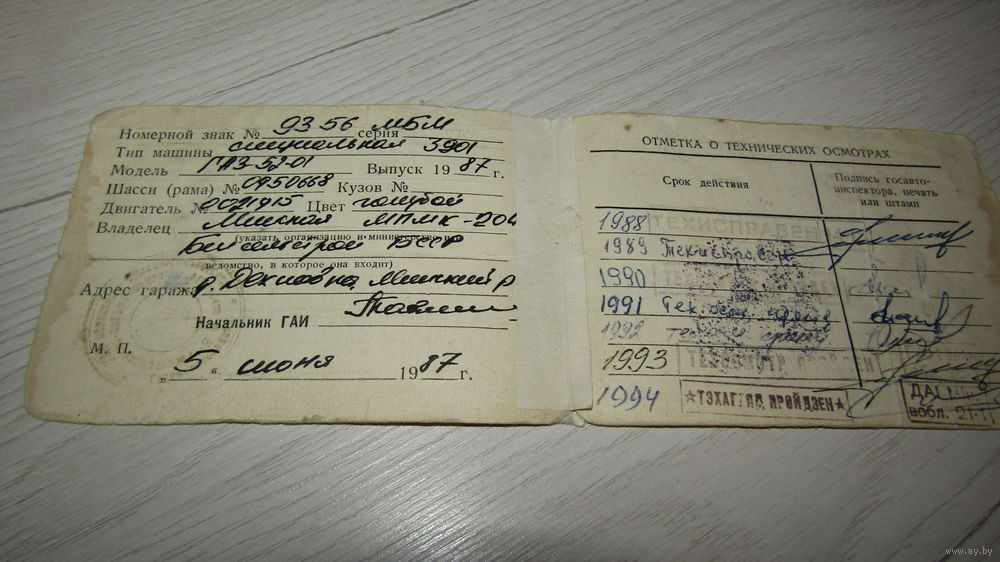 Номерной знак № 9356 МБМ серия
Тип машины специальная 3901
Модель ГАЗ-52-01 Выпуск 1987 г.
Шасси (рама) № 0950668 Кузов №
Двигатель № 0021915 Цвет голубой
Владелец Минская МПМК-204
(указать организацию и министерство,
БССР
ведомство, в которое она входит)
Адрес гаража Минский р
Начальник ГАИ
М. П.
„5“ июня 1987 г.
ОТМЕТКА О ТЕХНИЧЕСКИХ ОСМОТРАХ
Срок действия
Подпись госавто-
инспектора, печать
или штамп
1988 ТЕХИСПРАВЕН
1989 Техисправен
1990
1991 Тех
1992
1993 ТЕХОСМОТР
1994 ★ТЭХАГЛЯД ПРОЙДЗЕН★
ДАІ
вобл. 21-11
www.ay.by